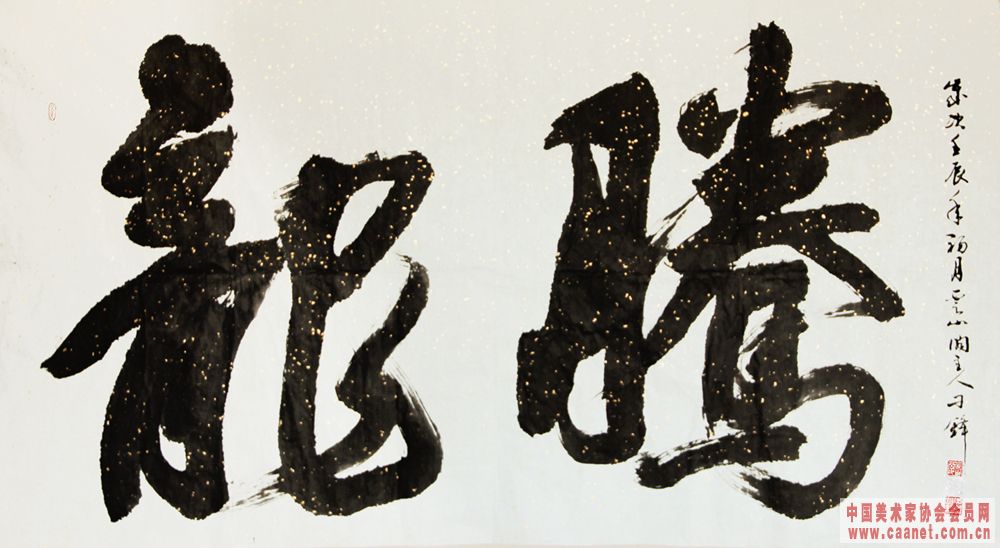 騰龍
歲次壬辰年 月 閣主人刁鋒
中国美术家协会会员网
www.caanet.com.cn